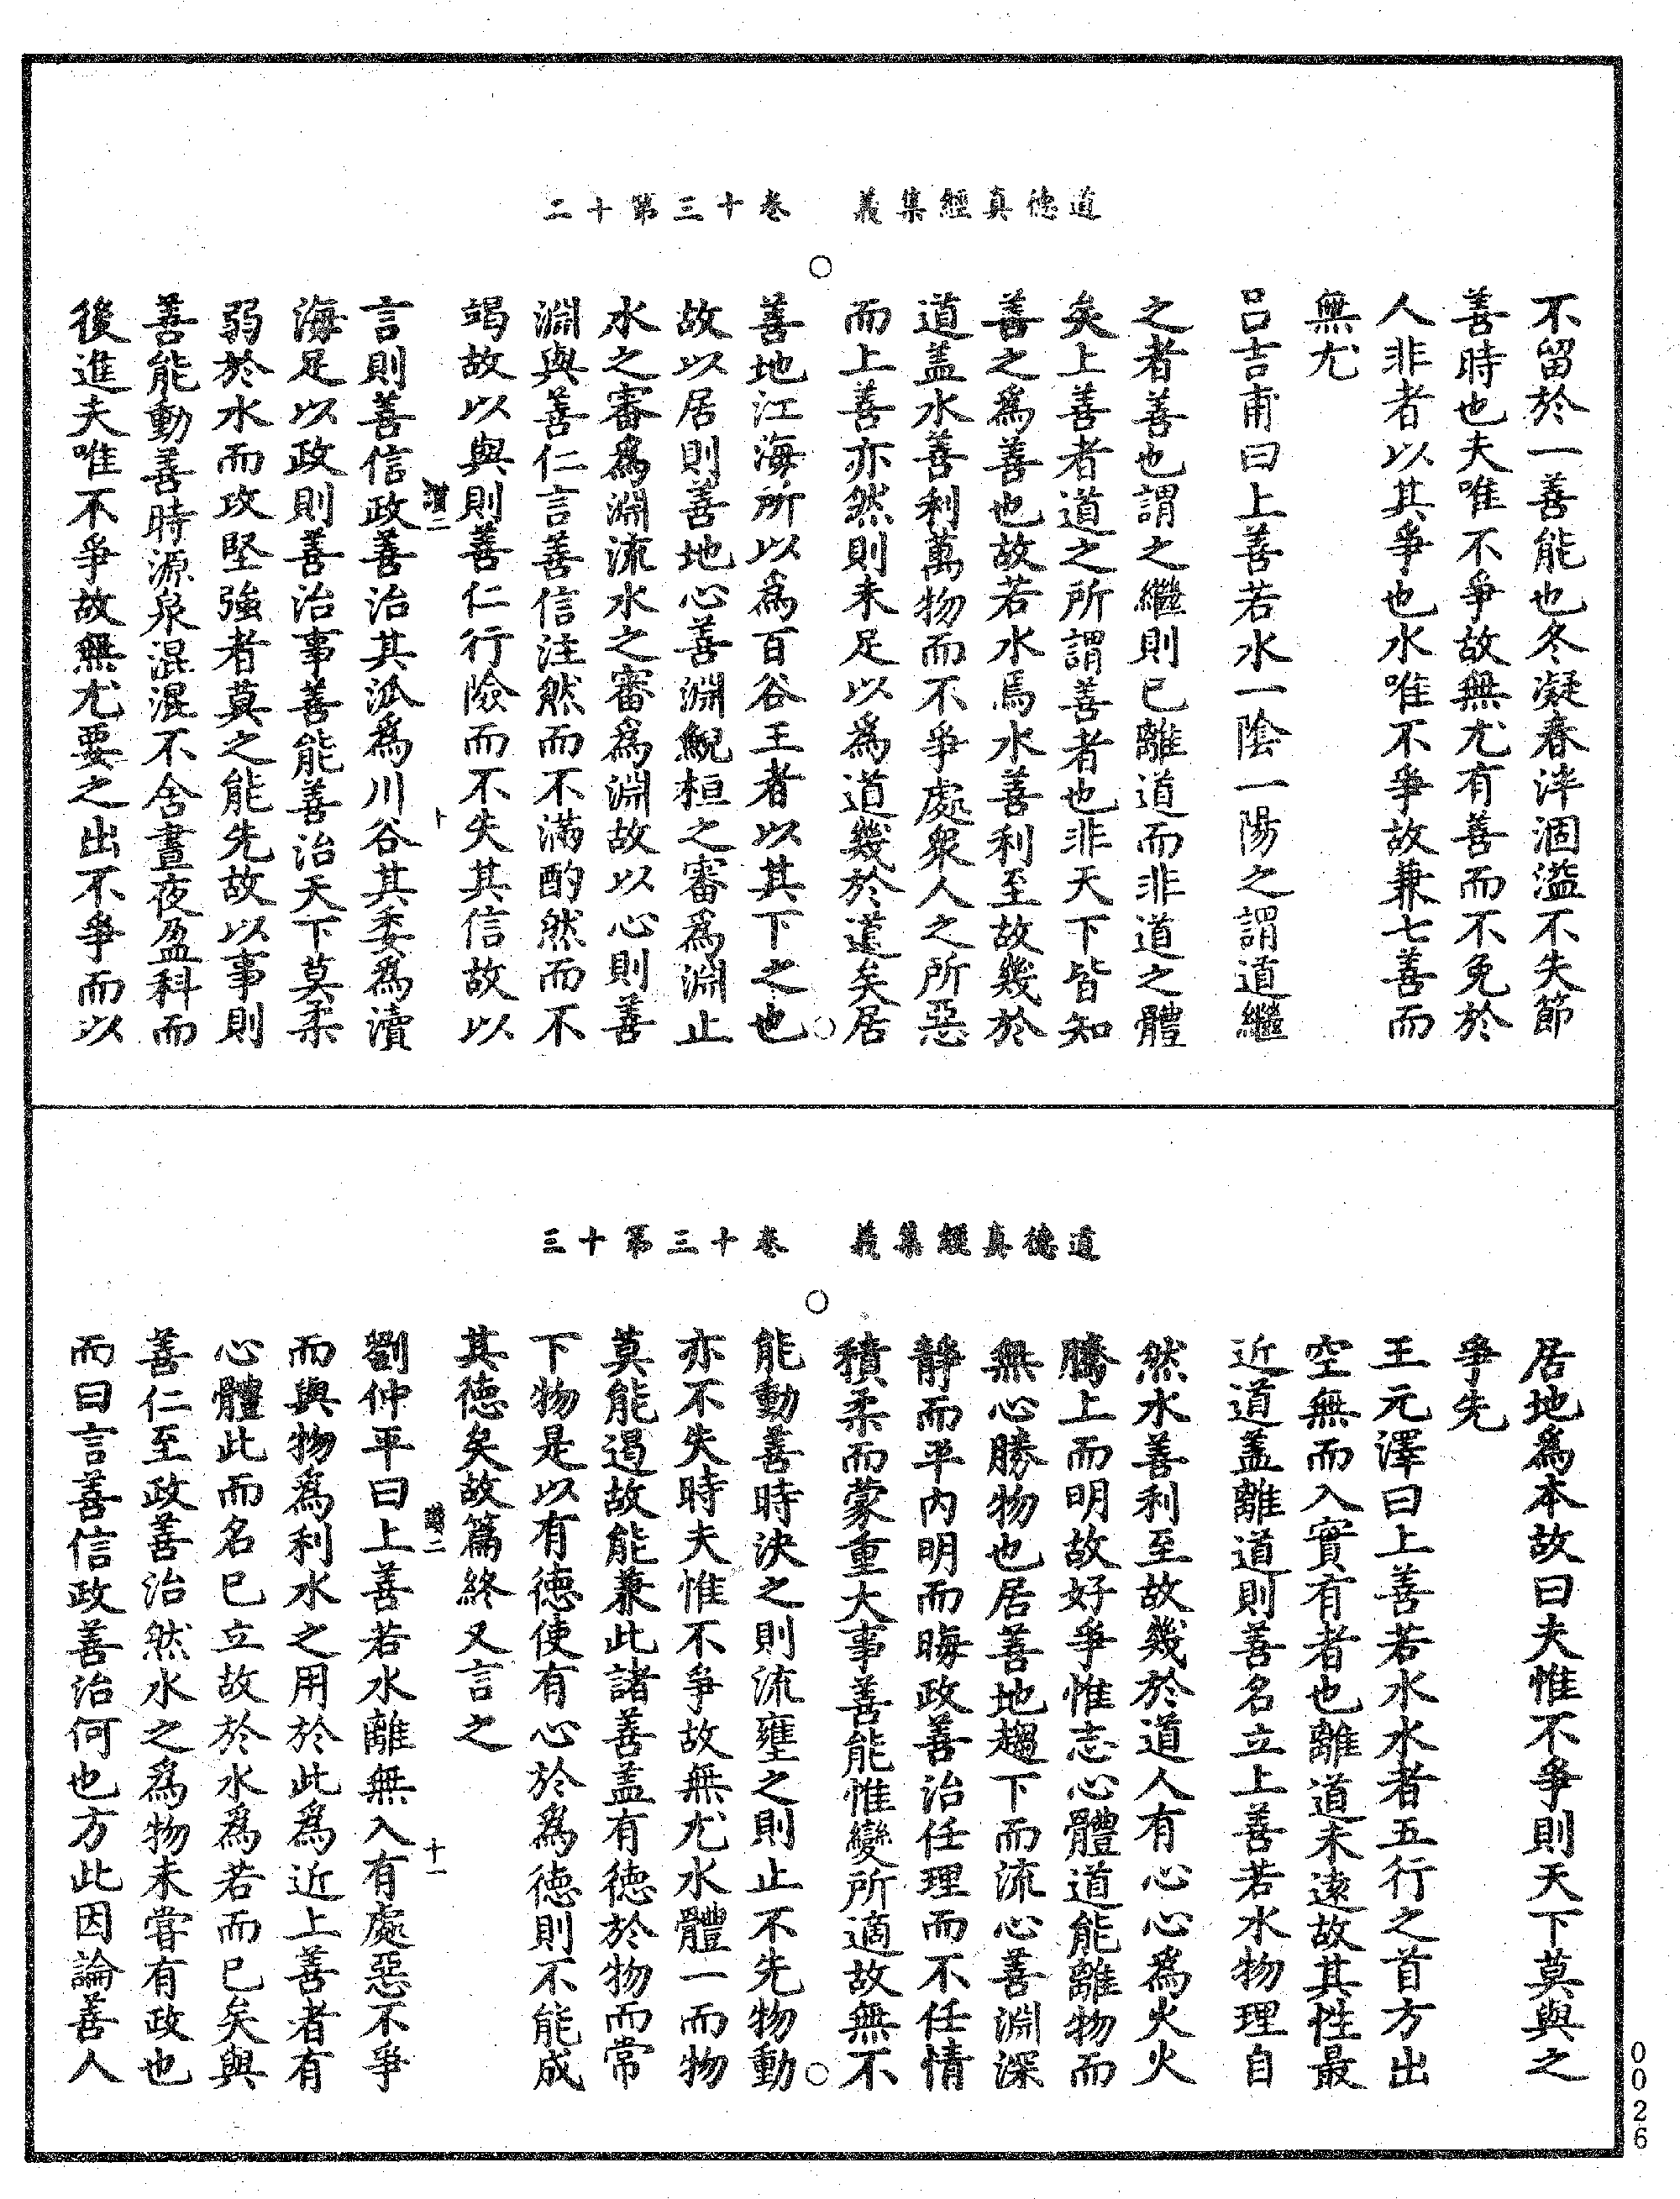 道德真經集義　卷十三第十二
不留於一善能也冬凝春泮涸溢不失節
善時也夫唯不爭故無尤有善而不免於
人非者以其爭也水唯不爭故兼七善而
無尤
吕吉甫曰上善若水一陰一陽之謂道繼
之者善也謂之繼則已離道而非道之體
矣上善者道之所謂善者也非天下皆知
善之爲善也故若水焉水善利至故幾於
道盖水善利萬物而不爭處衆人之所惡
而上善亦然則未足以爲道幾於道矣居
善地江海所以爲百谷王者以其下之也
故以居則善地心善淵鯢桓之審爲淵止
水之審爲淵流水之審爲淵故以心則善
淵與善仁言善信注然而不滿酌然而不
竭故以與則善仁行險而不失其信故以
讚二　十
言則善信政善治其派爲川谷其委爲瀆
海足以政則善治事善能善治天下莫柔
弱於水而攻堅強者莫之能先故以事則
善能動善時源泉混混不舍晝夜盈科而
後進夫唯不爭故無尤要之出不爭而以
道德真經集義　卷十三第十三
居地爲本故曰夫惟不爭則天下莫與之
爭先
王元澤曰上善若水水者五行之首方出
空無而入實有者也離道未遠故其性最
近道盖離道則善名立上善若水物理自
然水善利至故幾於道人有心心爲火火
騰上而明故好爭惟志心體道能離物而
無心勝物也居善地趨下而流心善淵深
靜而平內明而晦政善治任理而不任情
積柔而蒙重大事善能惟變所適故無不
能動善時決之則流壅之則止不先物動
亦不失時夫惟不爭故無尤水體一而物
莫能遏故能兼此諸善盖有德於物而常
下物是以有德使有心於爲德則不能成
其德矣故篇終又言之
讚二　十一
劉仲平曰上善若水離無入有處惡不爭
而與物爲利水之用於此爲近上善者有
心體此而名已立故於水爲若而已矣與
善仁至政善治然水之爲物未嘗有政也
而曰言善信政善治何也方此因論善人
0026